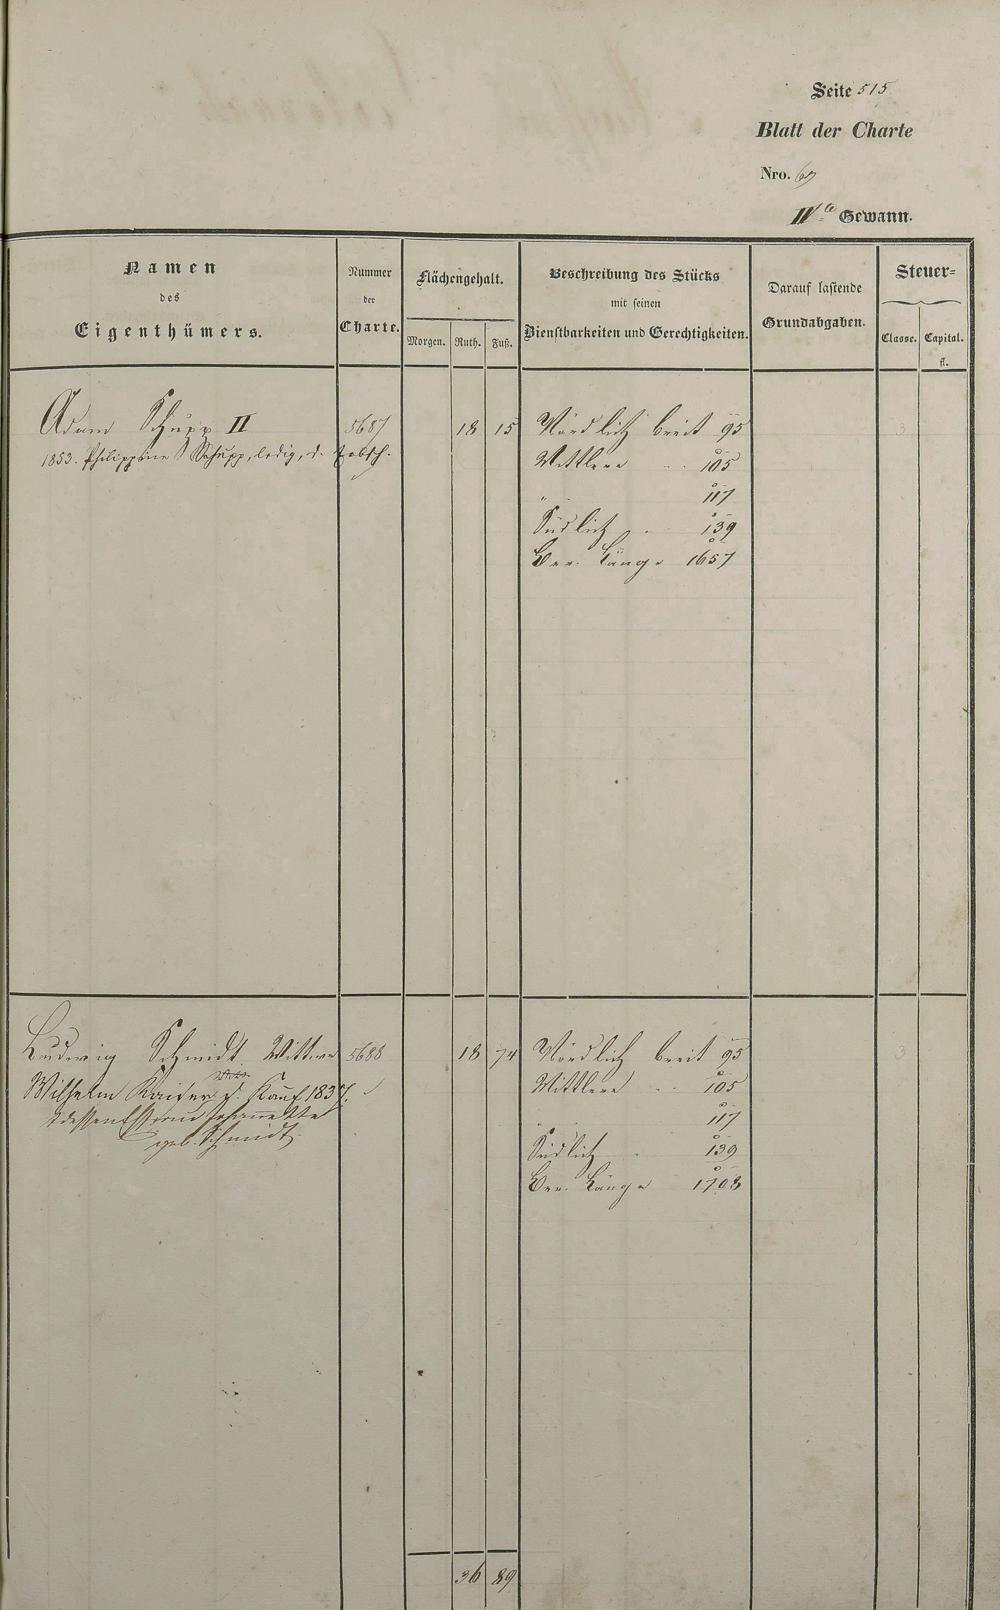 Seite 515
Blatt der Charte
Nro. 69
IVte Gewann.
Namen
des
Eigenthümers.
Nummer
der
Charte.
Flächengehalt.
Morgen. Ruth. Fuß.
Beschreibung des Stücks
mit seinen
Dienstbarkeiten und Gerechtigkeiten.
Darauf lastende
Grundabgaben.
Steuer=
Classe. Capital.
fl.
Adam Schupp II 5687 18 15 Nördlich breit 95 3
1853. Philippine Schupp, ledig, d. Erbsch. Mittlere 105
" 117
Südlich 139
Ber. Länge 1657
Ludwig Schmidt Wittwe 5688 18 74 Nördlich breit 95 3
Wilhelm Kaiser d. Kauf 1837. Mittlere 105
& dessen Ehefrau Johannette 117
geb. Schmidt. Südlich 139
Ber. Länge 1708
36 89